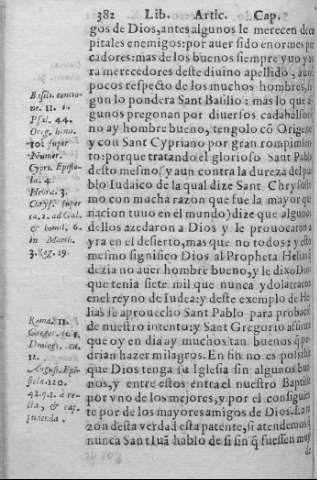 382 Lib. Artic. Cap.
gos de Dios, antes algunos le merecen de
pitales enemigos: por auer sido enormes pe
cadores: mas de los buenos siempre vuo y
ra merecedores deste diuino apellido, aun
pocos respecto de los muchos hombres, se
gun lo pondera Sant Basilio: mas lo que al
gunos pregonan por diuersos cadahalsos
no ay hombre bueno, tengolo cõ Origene
y con Sant Cypriano por gran rompimien
to: porque tratando el glorioso Sant Pablo
desto mesmo (y aun contra la dureza del pue
blo Iudaico de la qual dize Sant Chrysosto
mo con mucha razon que fue la mayor qu
nacion tuuo en el mundo) dize que algunos
dellos azedaron a Dios y le prouocaron a
yra en el desierto, mas que no todos: y esto
mesmo significo Dios al Propheta Helias q̃
dezia no auer hombre bueno, y le dixo Dios
que tenia siete mil que nunca ydolatraron
en el reyno de Iudea: y deste exemplo de He
lias se aprouecho Sant Pablo para probacion
de nuestro intento: y Sant Gregorio affirma
que oy en dia ay muchos tan buenos q̃ po
drian hazer milagros. En fin no es possible
que Dios tenga su Iglesia sin algunos bue
nos, y entre estos entra el nuestro Baptista
por vno de los mejores, y por el consiguien
te por de los mayores amigos de Dios. La ra
zon desta verdad esta patente, si atendemos q̃
nunca Sant Iuã hablo de si sin q̃ fuessen muy
de
Basili. contra
nr. 11. 1.
Psal. 44.
Orig. homi.
super
Cypri. Episto-
la. 4.
Hebra. 3.
Chrys. super
ca. 2. ad Gal.
& homil. 6.
in Matth.
3. Reg. 19.
Roma. 11.
Gregor.
11.
August. Epi-
stola. 120.
& cap.